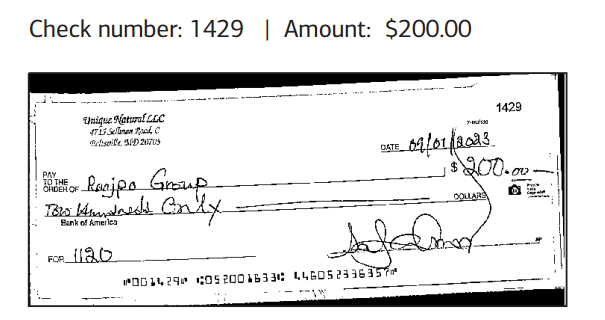 Check number: 1429 | Amount: $200.00
1429
Unique Natural LLC
4715 Sellman Road, C
Beltsville, MD 20705
DATE 09/01/2023
PAY TO THE ORDER OF Ranjpo Group $200.00
Two Hundreds Only DOLLARS
Bank of America
FOR 1120